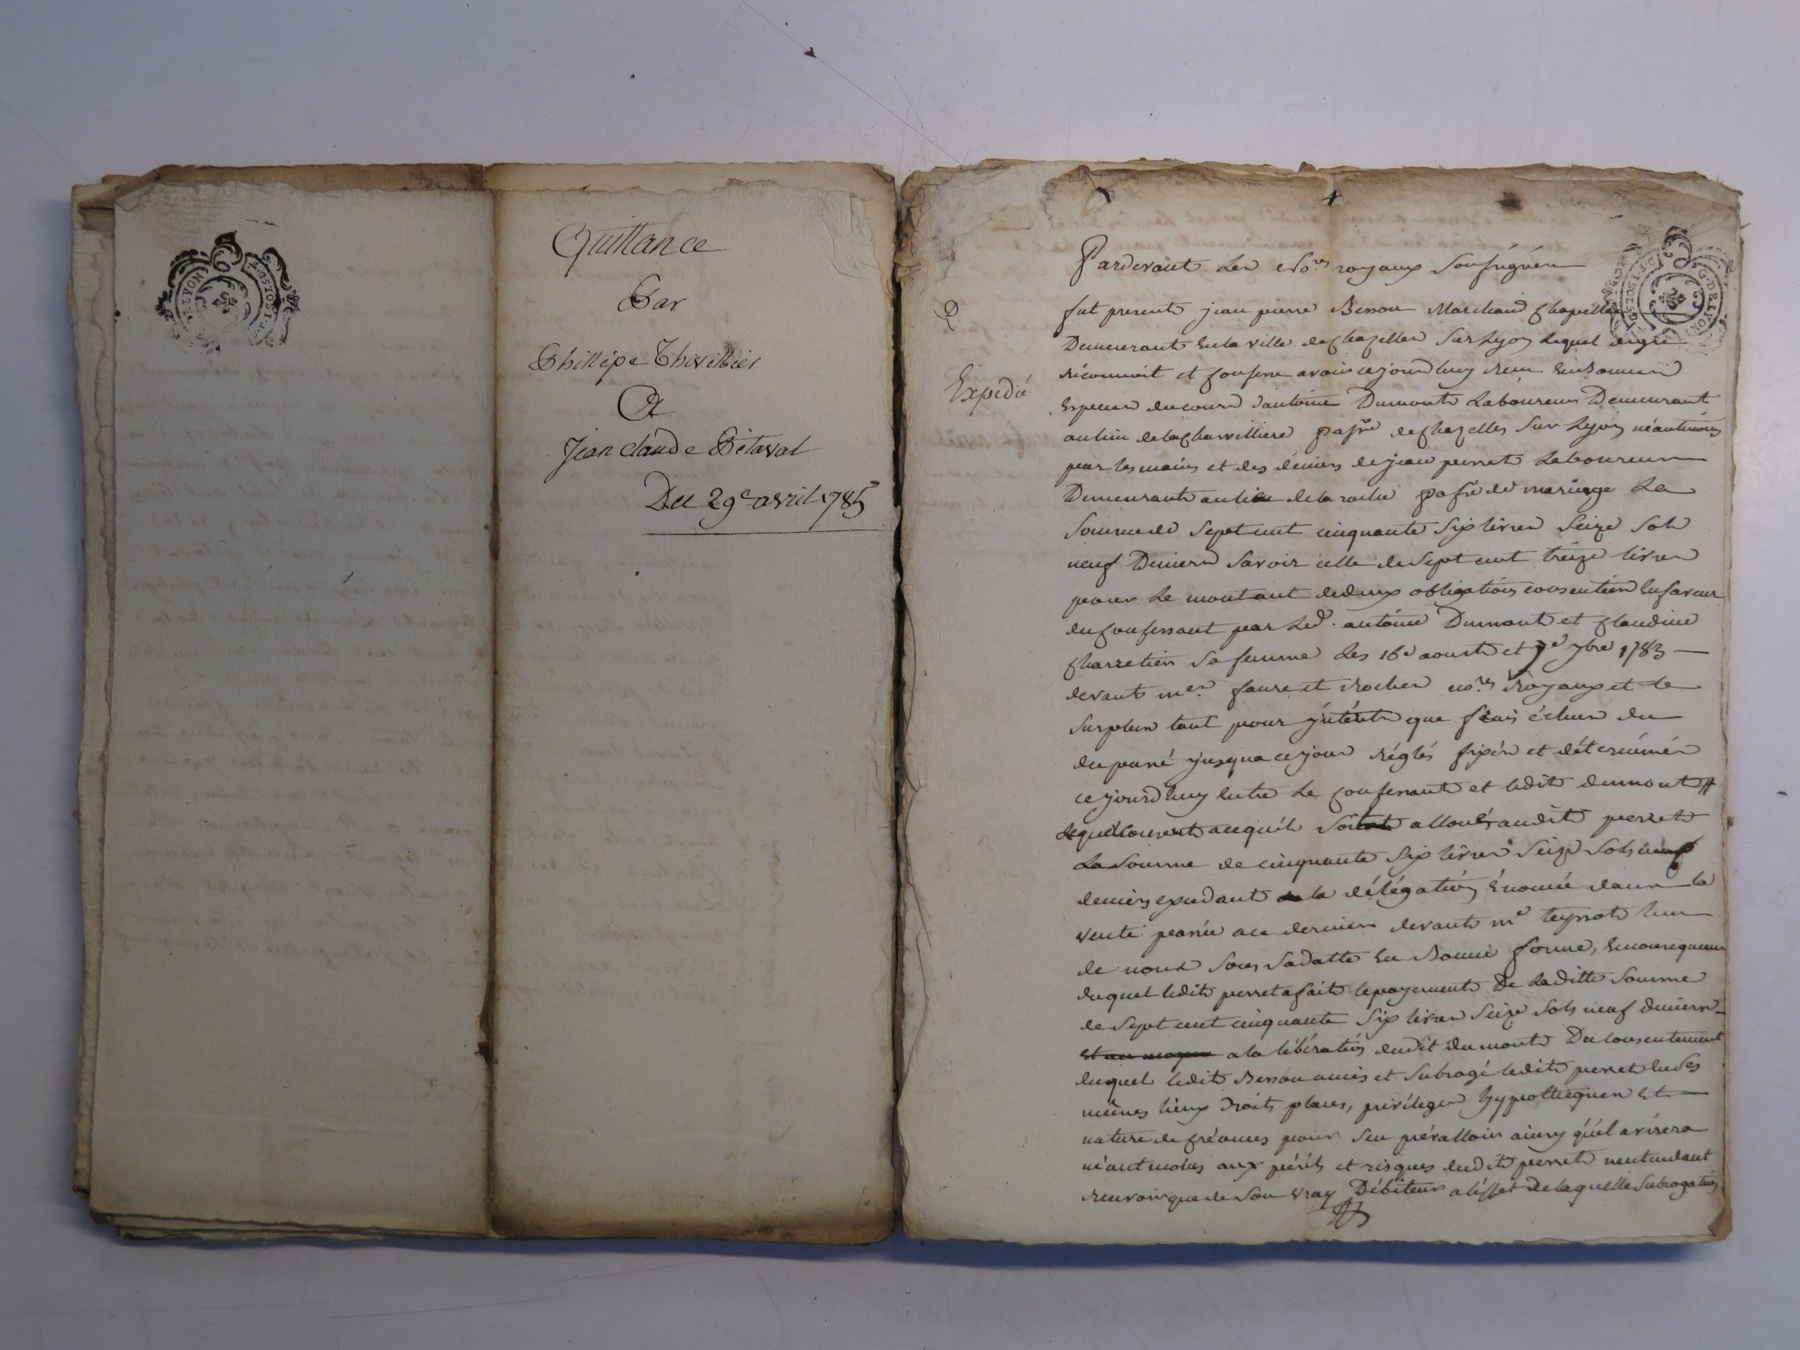 Quittance
Par
Phillipe Thevillier
A
Jean claude Pétaval
Du 29e avril 1785
Expedié
Pardevant Les No.res royaux soussignés
fut present jean pierre Besson Marchand Chapellier
Demeurant en la ville de chazelles sur Lyon Lequel de gré
reconnoit et confesse avoir cejourd'huy reçu en bonnes
Especes du cours d'antoine Dumont Laboureur Demeurant
au lieu de la paſse de chazelles sur Lyon néantmoins
par les mains et des déniers de jean perret Laboureur
Demeurant au lieu de la roche paſse de maringe La
somme de sept cent cinquante six livres seize sols
neuf Deniers savoir celle de sept cent treize livres
pour Le montant de deux obligations consenties en faveur
du confessant par Led. antoine Dumont et claudine
Charretien sa femme Les 16e aoust et 7bre 1783
devant mes. faure et rocher no.res Royaux et le
surplus tant pour intérêts que frais échus du
passé jusqua ce jour réglés fixés et déterminés
cejourd'huy entre Le confessant et ledit dumont
alloués audit perret
La somme de cinquante six livres seize sols neuf
deniers excedant la délégation énoncée dans la
vente passée a ce dernier devant me teyssot l'un
de nous sous sa datte en bonne forme, au moyen
duquel ledit perret a fait le payement De Laditte somme
de sept cent cinquante six livres seize sols neuf deniers
et au moyen a la libération dudit dumont Du consentement
duquel ledit Besson a mis et subrogé ledit perret en ses
mêmes lieux Droits places, privileges hypotheques et
nature de créances pour s'en prévalloir ainsy qu'il avisera
néantmoins aux périls et risques dudit perret n'entendant
recevoir que de son vray Débiteur a l'effet de laquelle subrogation